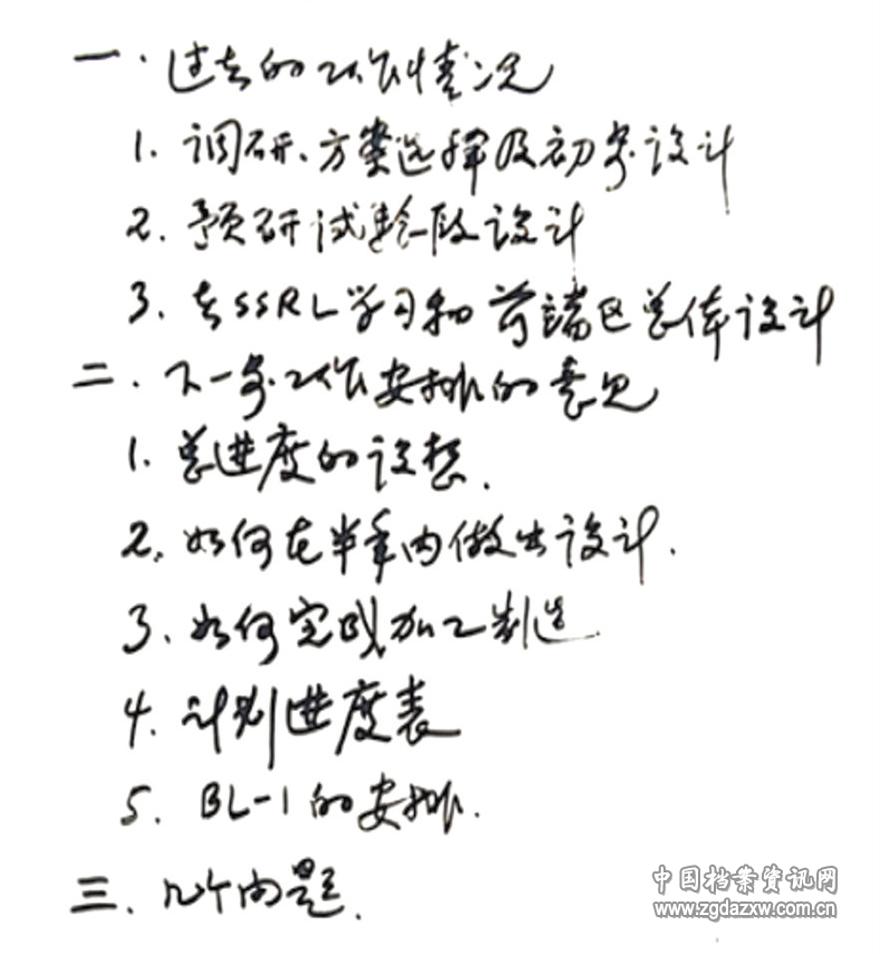 一.过去的工作情况
1.调研、方案选择及初步设计
2.预研试验段设计
3.去SSRL学习和前端区总体设计
二.下一步工作安排的意见
1.总进度的设想.
2.如何在半年内做出设计.
3.如何完成加工制造.
4.计划进度表
5.BL-1的安排.
三.几个问题.
中国档案资讯网
www.zgdazxw.com.cn